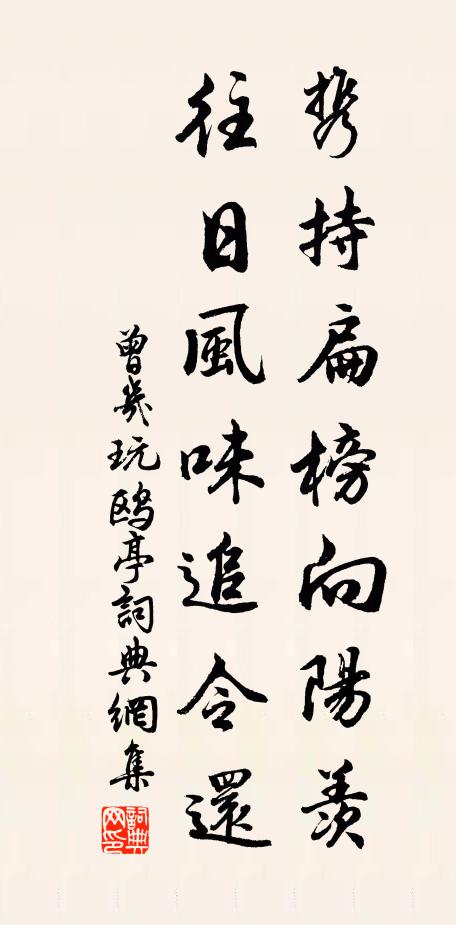 携持扁榜向陽羨
往日風味追令還
曾幾玩鷗亭詞典網集
詞典網印